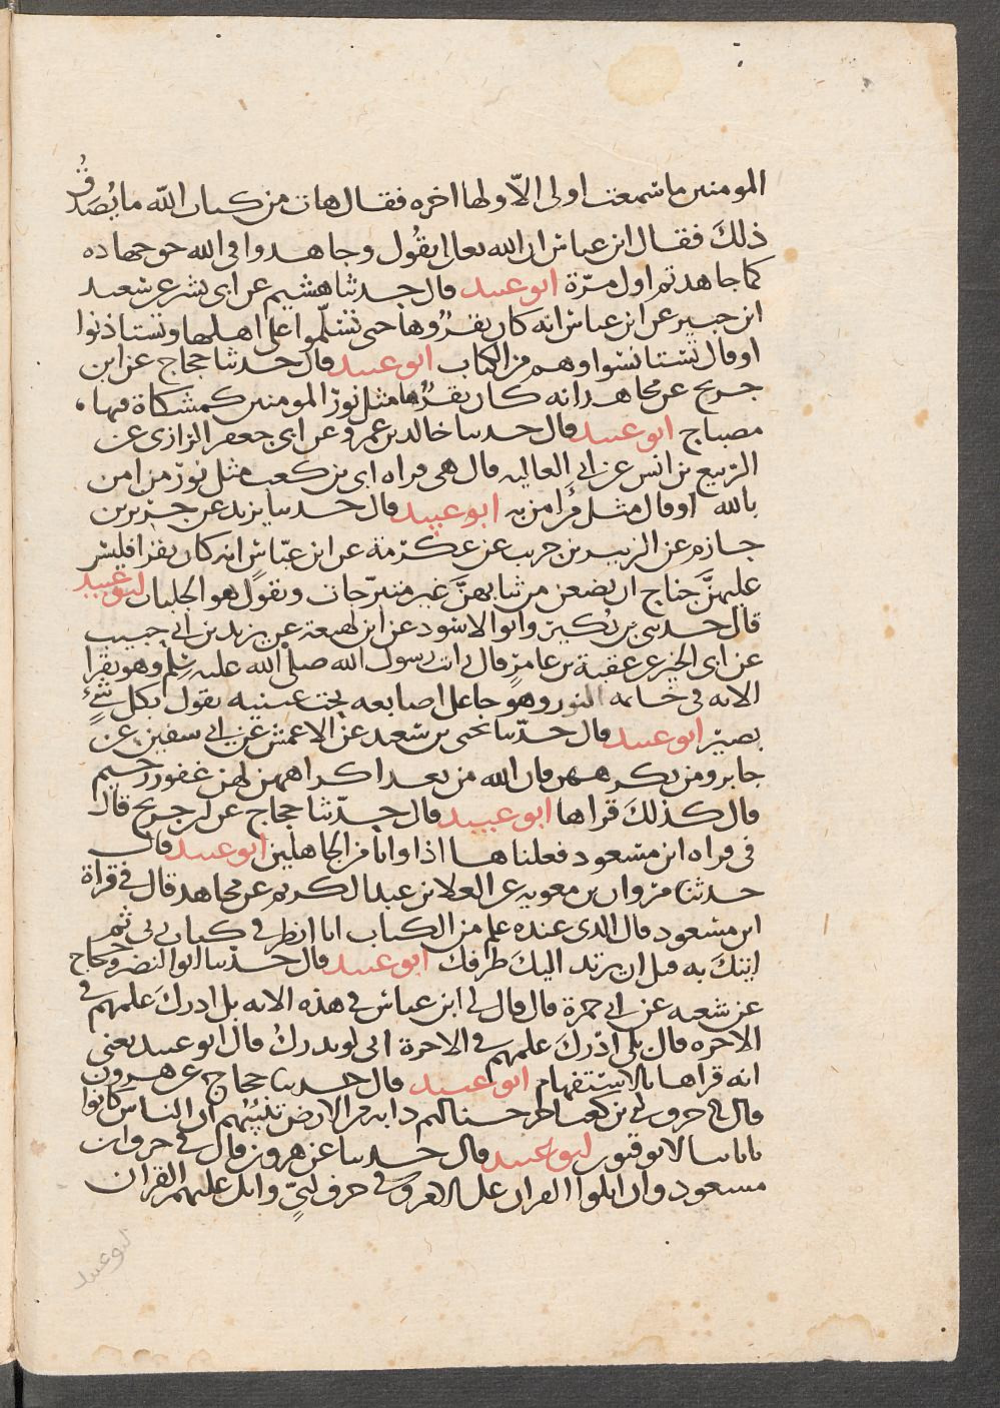 المومنين ما سمعت اولى الا ولها اخره فقال هات من كتاب الله ما يصدق
ذلك فقال ابن عباس ان الله تعالى يقول وجاهدوا في الله حق جهاده
كما جاهدتم اول مرة ابو عبيد قال حدثنا هشيم عن ابى بشر عن سعيد
ابن جبير عن ابن عباس انه كان يقروها حتى تسلموا على اهلها وتستاذنوا
او قال تستانسوا وهم من الكتاب ابو عبيد قال حدثنا حجاج عن ابن
جريج عن مجاهد انه كان يقروها مثل نور المومنين كمشكاة فيها
مصباح ابو عبيد قال حدثنا خالد بن عمرو عن ابى جعفر الرازى عن
الربيع بن انس عن ابى العاليه قال هى قراه ابى بن كعب مثل نور من امن
بالله او قال مثل من امن به ابو عبيد قال حدثنا يزيد عن جرير بن
حازم عن الزبير بن خريت عن عكرمة عن ابن عباس انه كان يقرا فليس
عليهن جناح ان يضعن من ثيابهن غير متبرجات ويقول هو الجلباب ابو عبيد
قال حدثنى بن بكير وابو الاسود عن ابن لهيعة عن يزيد بن ابى حبيب
عن ابى الخير عن عقبة بن عامر قال رايت رسول الله صلى الله عليه وسلم وهو يقرا
الايه فى خاتمة النور وهو جاعل اصابعه تحت عينيه يقول بكل شئ
بصير ابو عبيد قال حدثنا يحيى بن سعيد عن الاعمش عن ابى سفين عن
جابر ومن يكرههن فان الله من بعد اكراههن لهن غفور رحيم
قال كذلك قراها ابو عبيد قال حدثنا حجاج عن ابن جريج قال
فى قراه ابن مسعود فعلتها اذا وانا من الجاهلين ابو عبيد قال
حدثنا مروان بن معويه عن العلا بن عبد الكريم عن مجاهد قال فى قراة
ابن مسعود قال الذى عنده علم من الكتاب انا انظر فى كتاب ربى ثم
اتيك به قبل ان يرتد اليك طرفك ابو عبيد قال حدثنا ابو النضر وحجاج
عن شعبه عن ابى حمزة قال قال لى ابن عباس فى هذه الايه بل ادرك علمهم فى
الاخره قال بلى اأدرك علمهم فى الاخرة اى لو يدرك قال ابو عبيد يعنى
انه قراها بالاستفهام ابو عبيد قال حدثنا حجاج عن هرون
قال فى حرف ابى بن كعب اخرجنا لهم دابة من الارض تنبئهم ان الناس كانوا
باياتنا لا يوقنون ابو عبيد قال حدثنا عن هرون قال فى حرف ابن
مسعود وان اتلوا القران على الامر وفى حرف ابى واتل عليهم القران
ابو عبيد